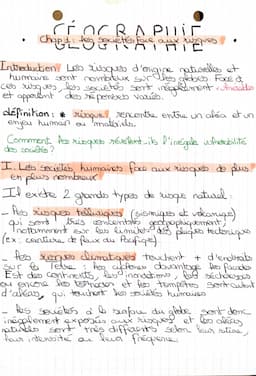 GÉOGRAPHIE
Chap 1 : Les sociétés face aux risques
Introduction: Les risques d'origine naturelles et
humaine sont nombreux sur le globe. Face à
ces risques, les sociétés sont inégalement vulnérables
et apportent des réponses variés.
définition : * risque : rencontre entre un aléa et un
enjeu humain ou matériels.
Comment les risques révèlent-ils l'inégale vulnérabilité
des sociétés ?
I. Les sociétés humaines face aux risques de plus
en plus nombreux
Il existe 2 grands types de risque naturel :
- Les risques telluriques (séismiques et volcaniques)
qui sont très concentrés géographiquement,
notamment sur les limites des plaques tectoniques
(ex : ceinture de feux du Pacifique)
- Les risques climatiques touchent + d'endroits
sur la Terre : les cyclones davantage les façades
Est des continents, les inondations, les sécheresses
ou encore les tornades et les tempêtes sont autant
d'aléas, qui touchent les sociétés humaines
- Les sociétés à la surface du globe sont donc
inégalement exposées aux risques et les aléas
naturels sont très différents selon leur nature,
leur intensité ou leur fréquence.